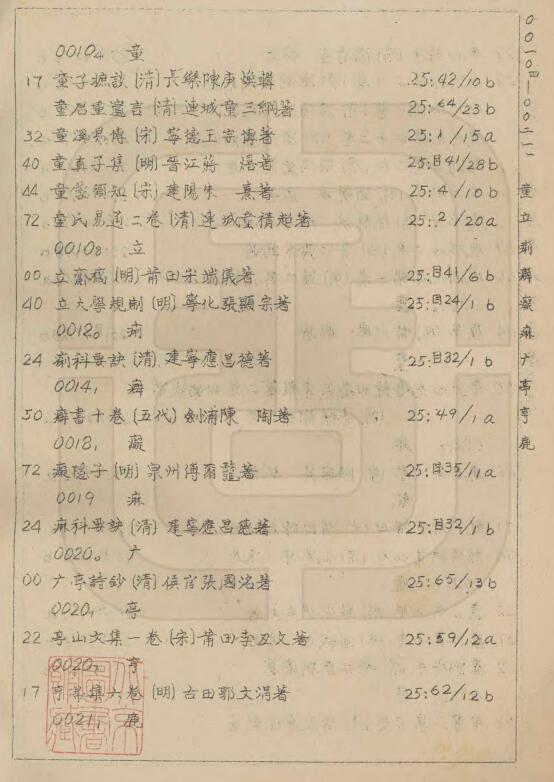 0010₄ 童
17 童子摭談〔清〕長樂陳庚煥輯 25:42/10b
童君重寱言〔清〕連城童三綱著 25:64/23b
32 童溪易傳〔宋〕寧德王宗傳著 25:1/15a
40 童真子集〔明〕晉江蔣 著 25:目41/28b
44 童蒙須知〔宋〕建陽朱 熹著 25:4/10b
72 童氏易通二卷〔清〕連城童積超著 25:2/20a
0010₈ 立
00 立齋稿〔明〕莆田宋端儀著 25:目41/6b
40 立大學規制〔明〕寧化張顯宗著 25:目24/1b
0012₀ 痢
24 痢科要訣〔清〕建寧應昌德著 25:目32/1b
0014₁ 癖
50 癖書十卷〔五代〕劍浦陳 陶著 25:49/1a
0018₁ 癡
72 癡隱子〔明〕泉州傅 著 25:目35/11a
0019 痳
24 痳科要訣〔清〕建寧應昌德著 25:目32/1b
0020₀ 广
00 广亭詩鈔〔清〕侯官張國洺著 25:65/13b
0020₁ 亭
22 亭山文集一卷〔宋〕莆田李丑文著 25:59/12a
0020₇ 亨
17 亨帚集六卷〔明〕古田郭文涓著 25:62/12b
0021₁ 鹿
0010四—0021一
童
立
痢
癖
癡
痳
广
亭
亨
鹿